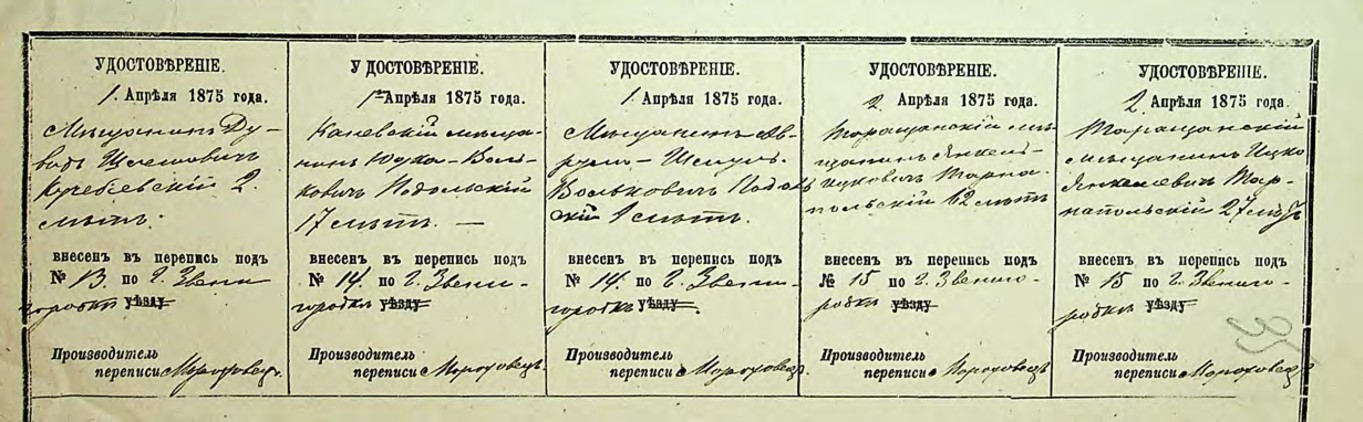 УДОСТОВѢРЕНІЕ.
1. Апрѣля 1875 года.
Мѣщанинъ Ду-
видъ
2.
лѣтъ.
внесенъ въ перепись подъ
№ 13. по г. Звени
городкѣ уѣзду
Производитель
переписи Мороховецъ.
УДОСТОВѢРЕНІЕ.
1го Апрѣля 1875 года.
Каневскій мѣща-
нинъ Юдка-Воль-
ковичъ Подольскій
17 лѣтъ. —
внесенъ въ перепись подъ
№ 14. по г. Звени-
городкѣ уѣзду
Производитель
переписи Мороховецъ.
УДОСТОВѢРЕНІЕ.
1. Апрѣля 1875 года.
Мѣщанинъ Ав-
румъ-Шмуль.
Вольковичъ Подоль
скій 1 лѣтъ.
внесенъ въ перепись подъ
№ 14. по г. Звени-
городкѣ уѣзду.
Производитель
переписи Мороховец
УДОСТОВѢРЕНІЕ.
2 Апрѣля 1875 года.
Таращанскій мѣ-
щанинъ Янкель-
Ицковичъ Тарна-
польскій 62 лѣтъ
внесенъ въ перепись подъ
№ 15 по г. Звениго-
родкѣ уѣзду
Производитель
переписи Мороховецъ
УДОСТОВѢРЕНІЕ.
2 Апрѣля 1875 года.
Таращанскій
мѣщанинъ Ицко
Янкелевичъ Тар-
напольскій 27 лѣтъ
внесенъ въ перепись подъ
№ 15 по г. Звениго-
родкѣ уѣзду
Производитель
переписи Мороховец